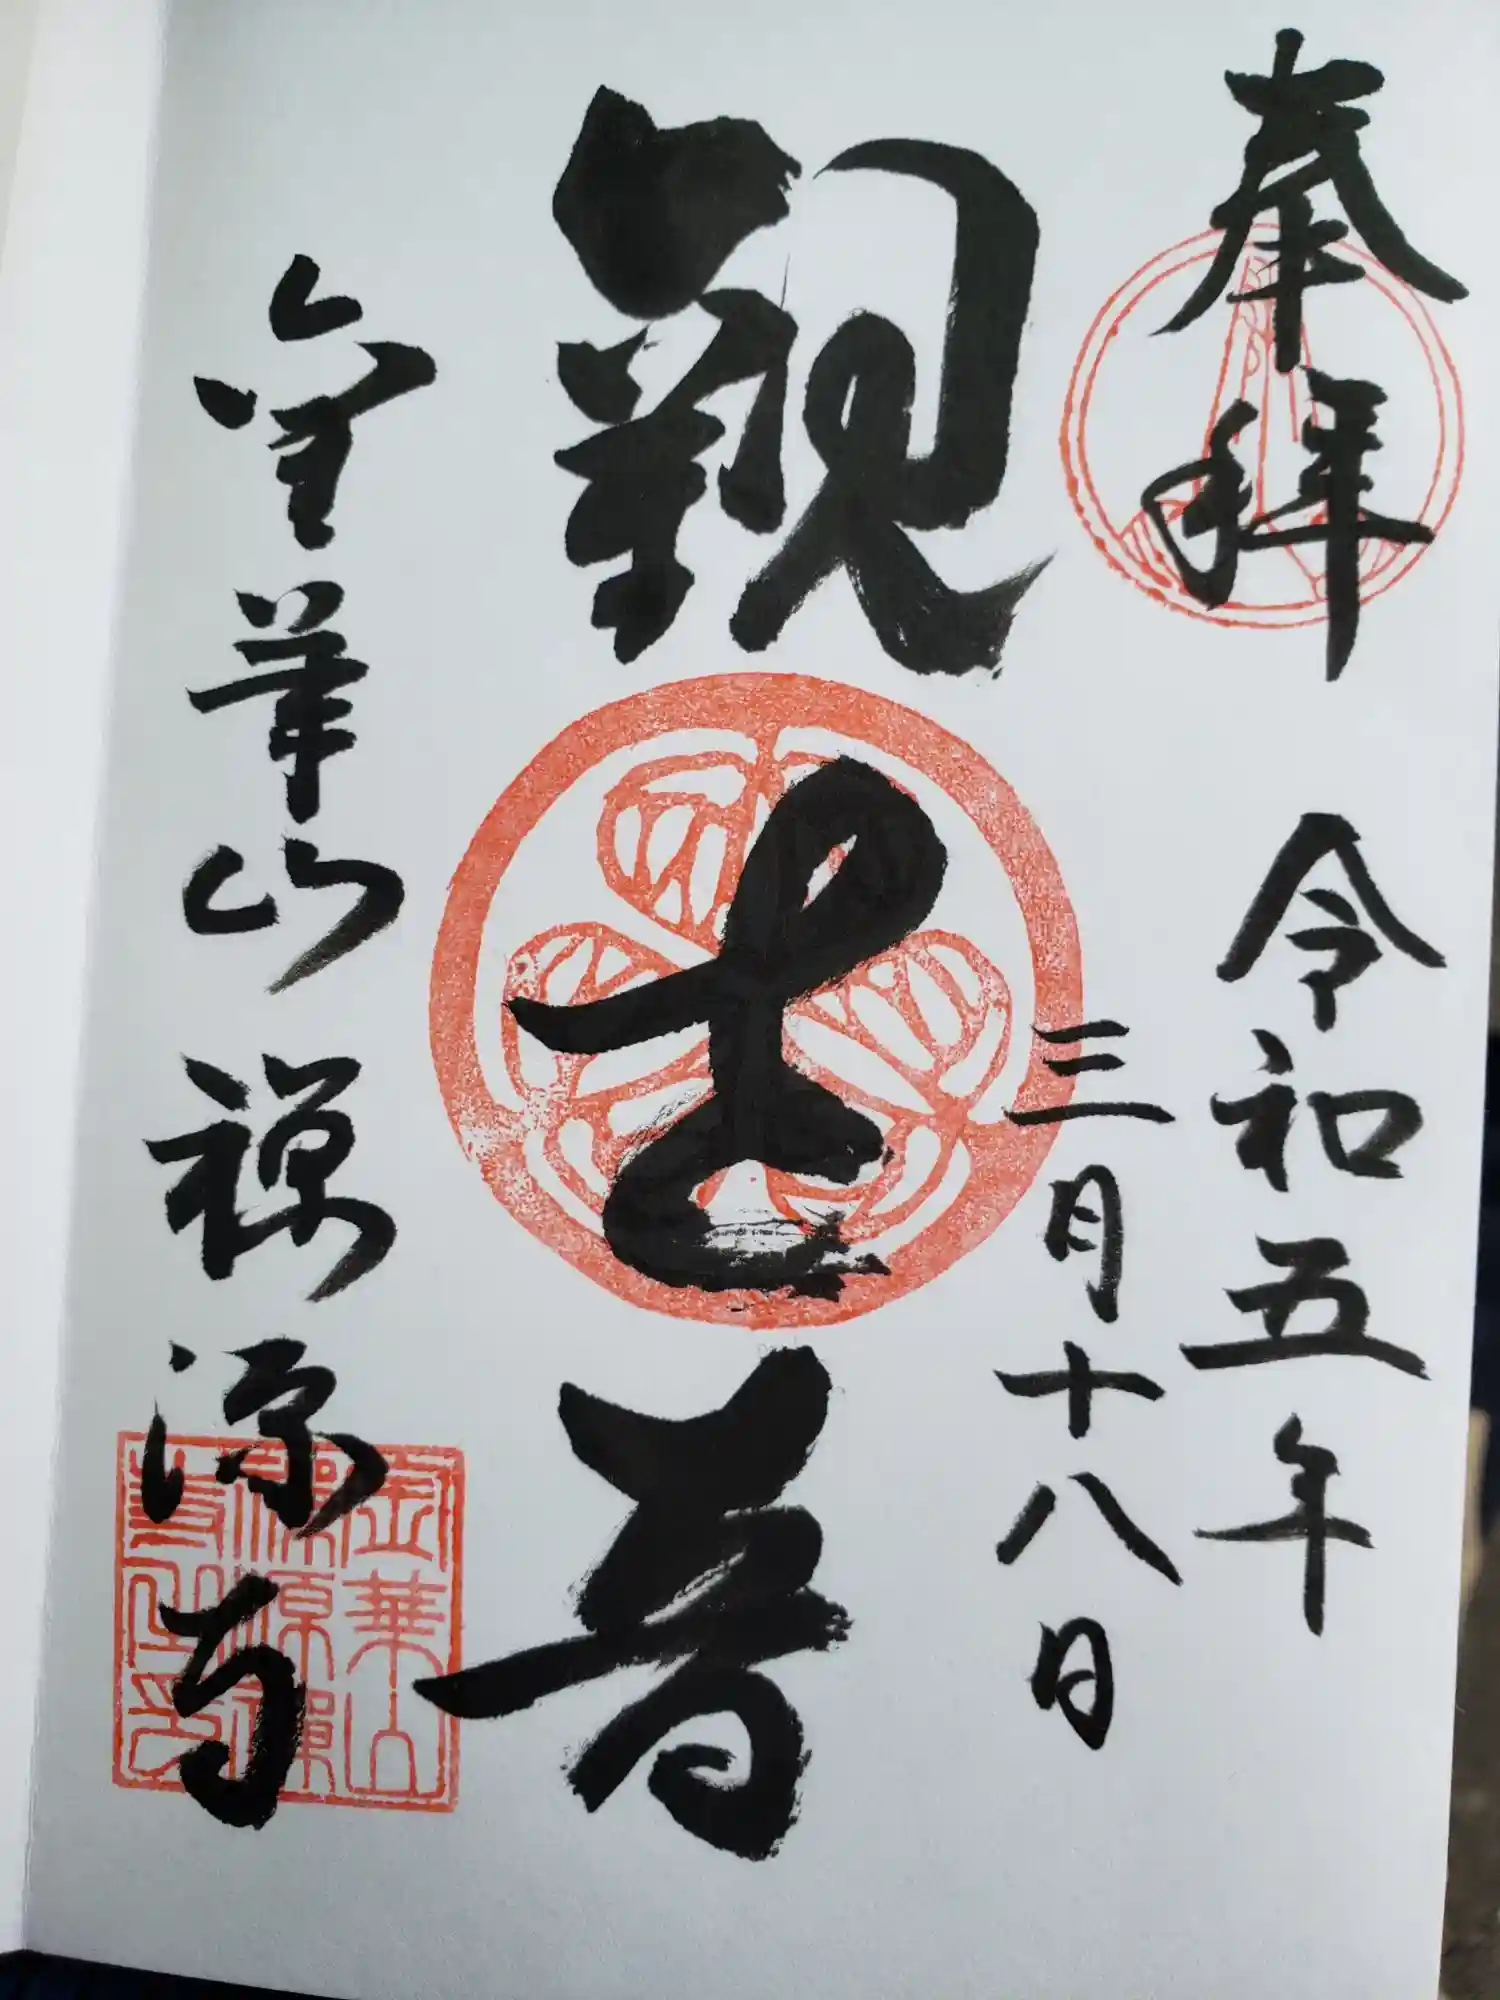 奉拝
令和五年
三月十八日
觀世音
金華山禅源寺
金華山
禅源禅
寺之印